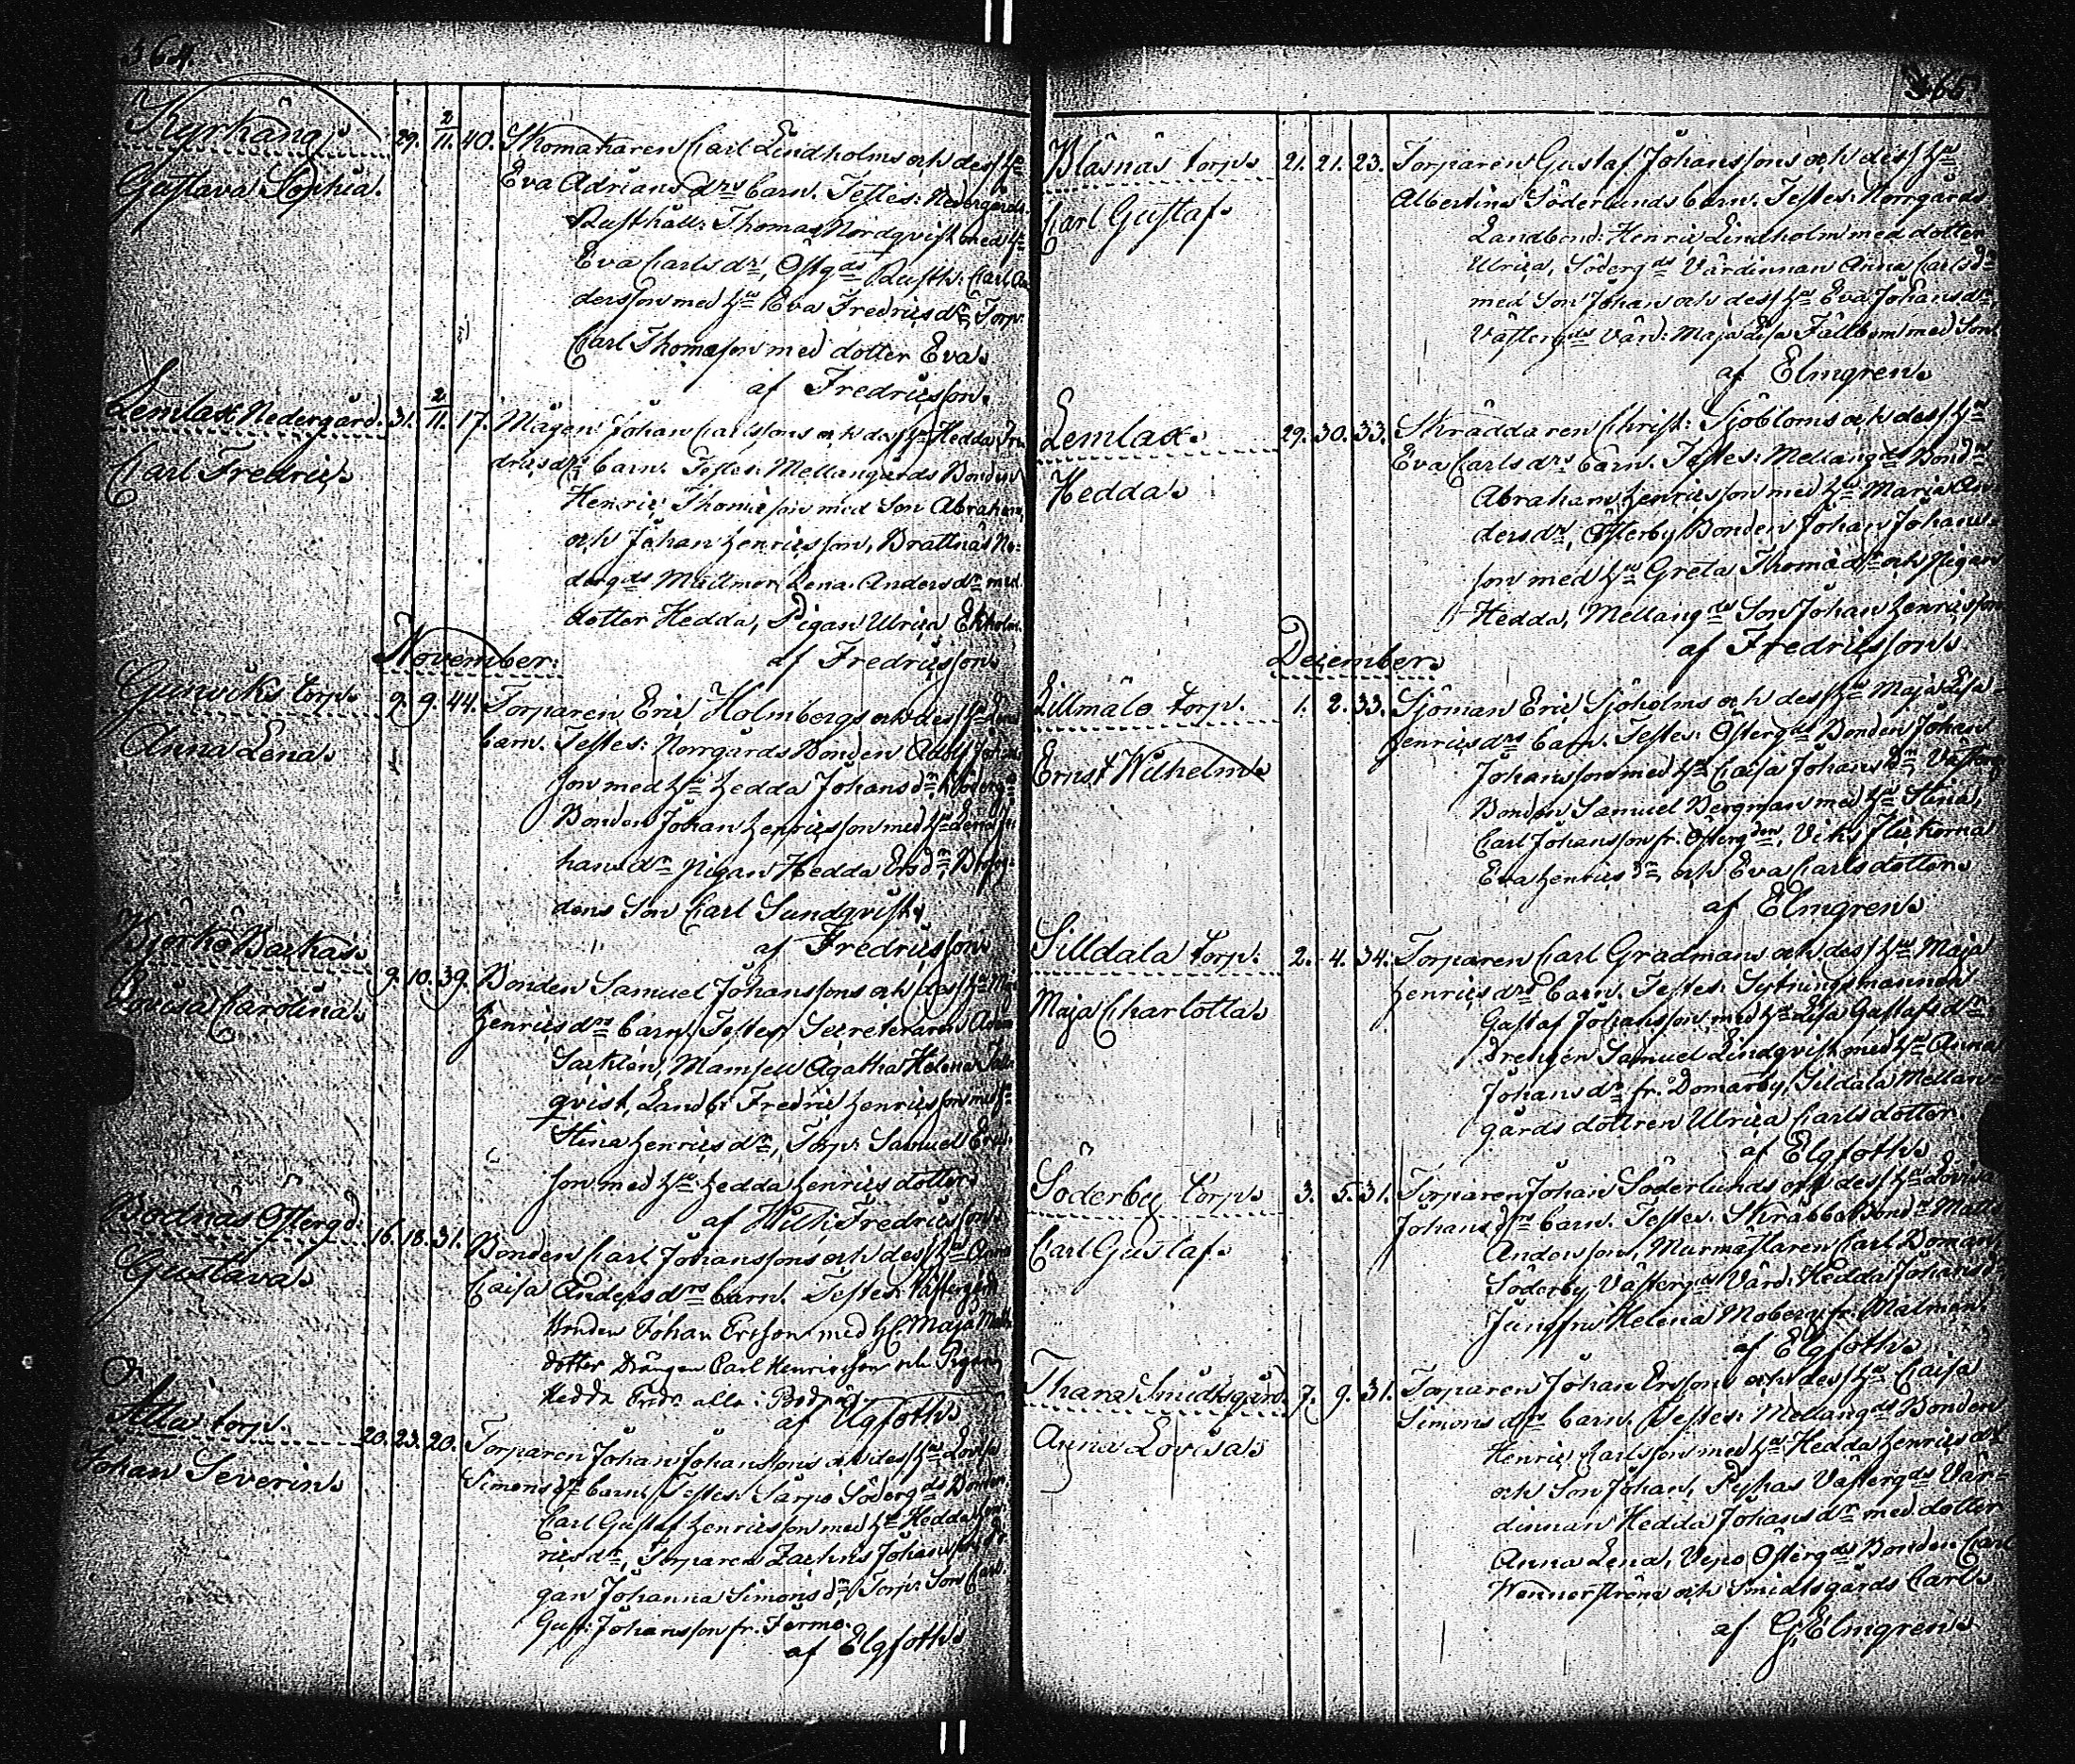 364.
Kyrkäng
29. 2/11. 40. Skomakaren Carl Lindholms och dess Hu
Gustava Sophia.
Eva Adriansdrs barn. Testes: Nedergårds
Rusthåll: Thomas Nordqvist med Hu
Eva Carlsdr, Östgds Rusth: Carl An
dersson med Hu Eva Fredricsdr, Torp.
Carl Thomasson med dotter Eva.
af Fredricsson.
Lemlax Nedergård. 31. 2/11. 17. Mågen Johan Carlssons och dess Hu Hedda Fre
Carl Fredric.
dricsdrs barn. Testes: Mellangårds Bonden
Henric Thomasson med Son Abraham
och Johan Henricsson, Brattnäs Ne-
dergds Lena Andersdr med
dotter Hedda, Pigan Ulrica Ekholm.
November: af Fredricsson
Gunviks torp. 9. 9. 44. Torparen Eric Holmbergs och dess Hu Lena
Anna Lena.
barn. Testes: Norrgårds Bonden Adolf Johans
son med Hu Hedda Johansdr, Södergds
Bonden Johan Henricsson med Hu Lena Jo
hansdr Pigan Hedda Ersdr,
dens Son Carl Sundqvist,
af Fredricsson
Bjerkö Backas 9. 10. 39. Bonden Samuel Johanssons och dess Hu Maja
Lovisa Carolina.
Henricsdrs barn. Testes: Secreteraren Adam
Sacklen, Mamsell Agatha Helena
qvist, Landb: Fredric Henricsson med Hu
Stina Henricsdr, Torp: Samuel Erics
son med Hu Hedda Henricsdotter
af Fredricsson
Bodnäs Östergd: 16. 18. 31. Bonden Carl Johanssons och dess Hu Anna
Gustava.
Caisa Andersdrs barn. Testes: Västergds
Bonden Johan Ersson med H. Maja Matts
dotter Drängen Carl Henricsson och Pigan
Hedda Fredr. alla i Bodnäs
af Elgfoth.
Atta torp. 20. 23. 20. Torparen Johan Johanssons och dess Hu Lovisa
Johan Severin.
Simonsdrs barn. Testes: Särpo Södergds Bonden
Carl Gustaf Henricsson med Hu Hedda Hen
ricsdr, Torparen Zachris Johansson, Pi
gan Johanna Simonsdr, Torp. Son Carl
Gust: Johansson fr. Fermo.
af Elgfoth.
365.
Bläsnäs torp. 21. 21. 23. Torparen Gustaf Johanssons och dess Hu
Carl Gustaf.
Albertina Söderlunds barn. Testes: Norrgårds
Landbond: Henric Lindholm med dotter
Ulrica, Södergds Värdinnan Anna Carlsdr
med Son Johan och dess Hu Eva Johansdr,
Västergds Värd: Maja Lisa Fällbom med Son.
af Elmgren.
Lemlax. 29. 30. 33. Skräddaren Christ: Sjöbloms och dess Hu
Hedda.
Eva Carlsdrs barn. Testes: Mellangds Bondn
Abraham Henricsson med Hu Maria An
dersdr, Österby Bonden Johan Johans-
son med Hu Greta Thomædr och Pigan
Hedda, Mellangds Son Johan Henricsson
December. af Fredricsson.
Lillmälö torp. 1. 2. 33. Sjöman Eric Sjöholms och dess Hu Maja Lisa
Ernst Wilhelm.
Henricsdrs barn. Testes: Östergds Bonden Johan
Johansson med Hu Caisa Johansdr, Västergds
Bonden Samuel Bergman med Hu Stina,
Carl Johansson fr. Östergden, Viks flickorna
Eva Henricsdr och Eva Carlsdotter.
af Elmgren.
Silldala torp. 2. 4. 34. Torparen Carl Gradmans och dess Hu Maja
Maja Charlotta.
Henricsdrs barn. Testes: Sytningsmannen
Gustaf Johansson med Hu Lisa Gustafsdr
Drengen Samuel Lindqvist med Hu Anna
Johansdr fr. Domarby, Sildala Mellan-
gårds dottren Ulrica Carlsdotter.
af Elgfoth.
Söderby torp. 3. 5. 31. Torparen Johan Söderlunds och dess Hu Lovisa
Carl Gustaf.
Johansdrs barn. Testes: Skräbbö Bondn Matts
Andersson, Murmästaren Carl Boman,
Söderby Västergds Värd: Hedda Johansdr
Jungfru Helena Moberg fr. Malmen.
af Elgfoth.
Tharä Smidtsgård. 7. 9. 31. Torparen Johan Erssons och dess Hu Caisa
Anna Lovisa.
Simonsdrs barn. Testes: Mellangds Bonden
Henric Carlsson med Hu Hedda Henricsdr
och Son Johan, Pyhas Västergds Vär-
dinnan Hedda Johansdr med dotter
Anna Lena, Vepo Östergds Bonden Carl
Wennerström och Smidtsgårds Carl.
af G: Elmgren.